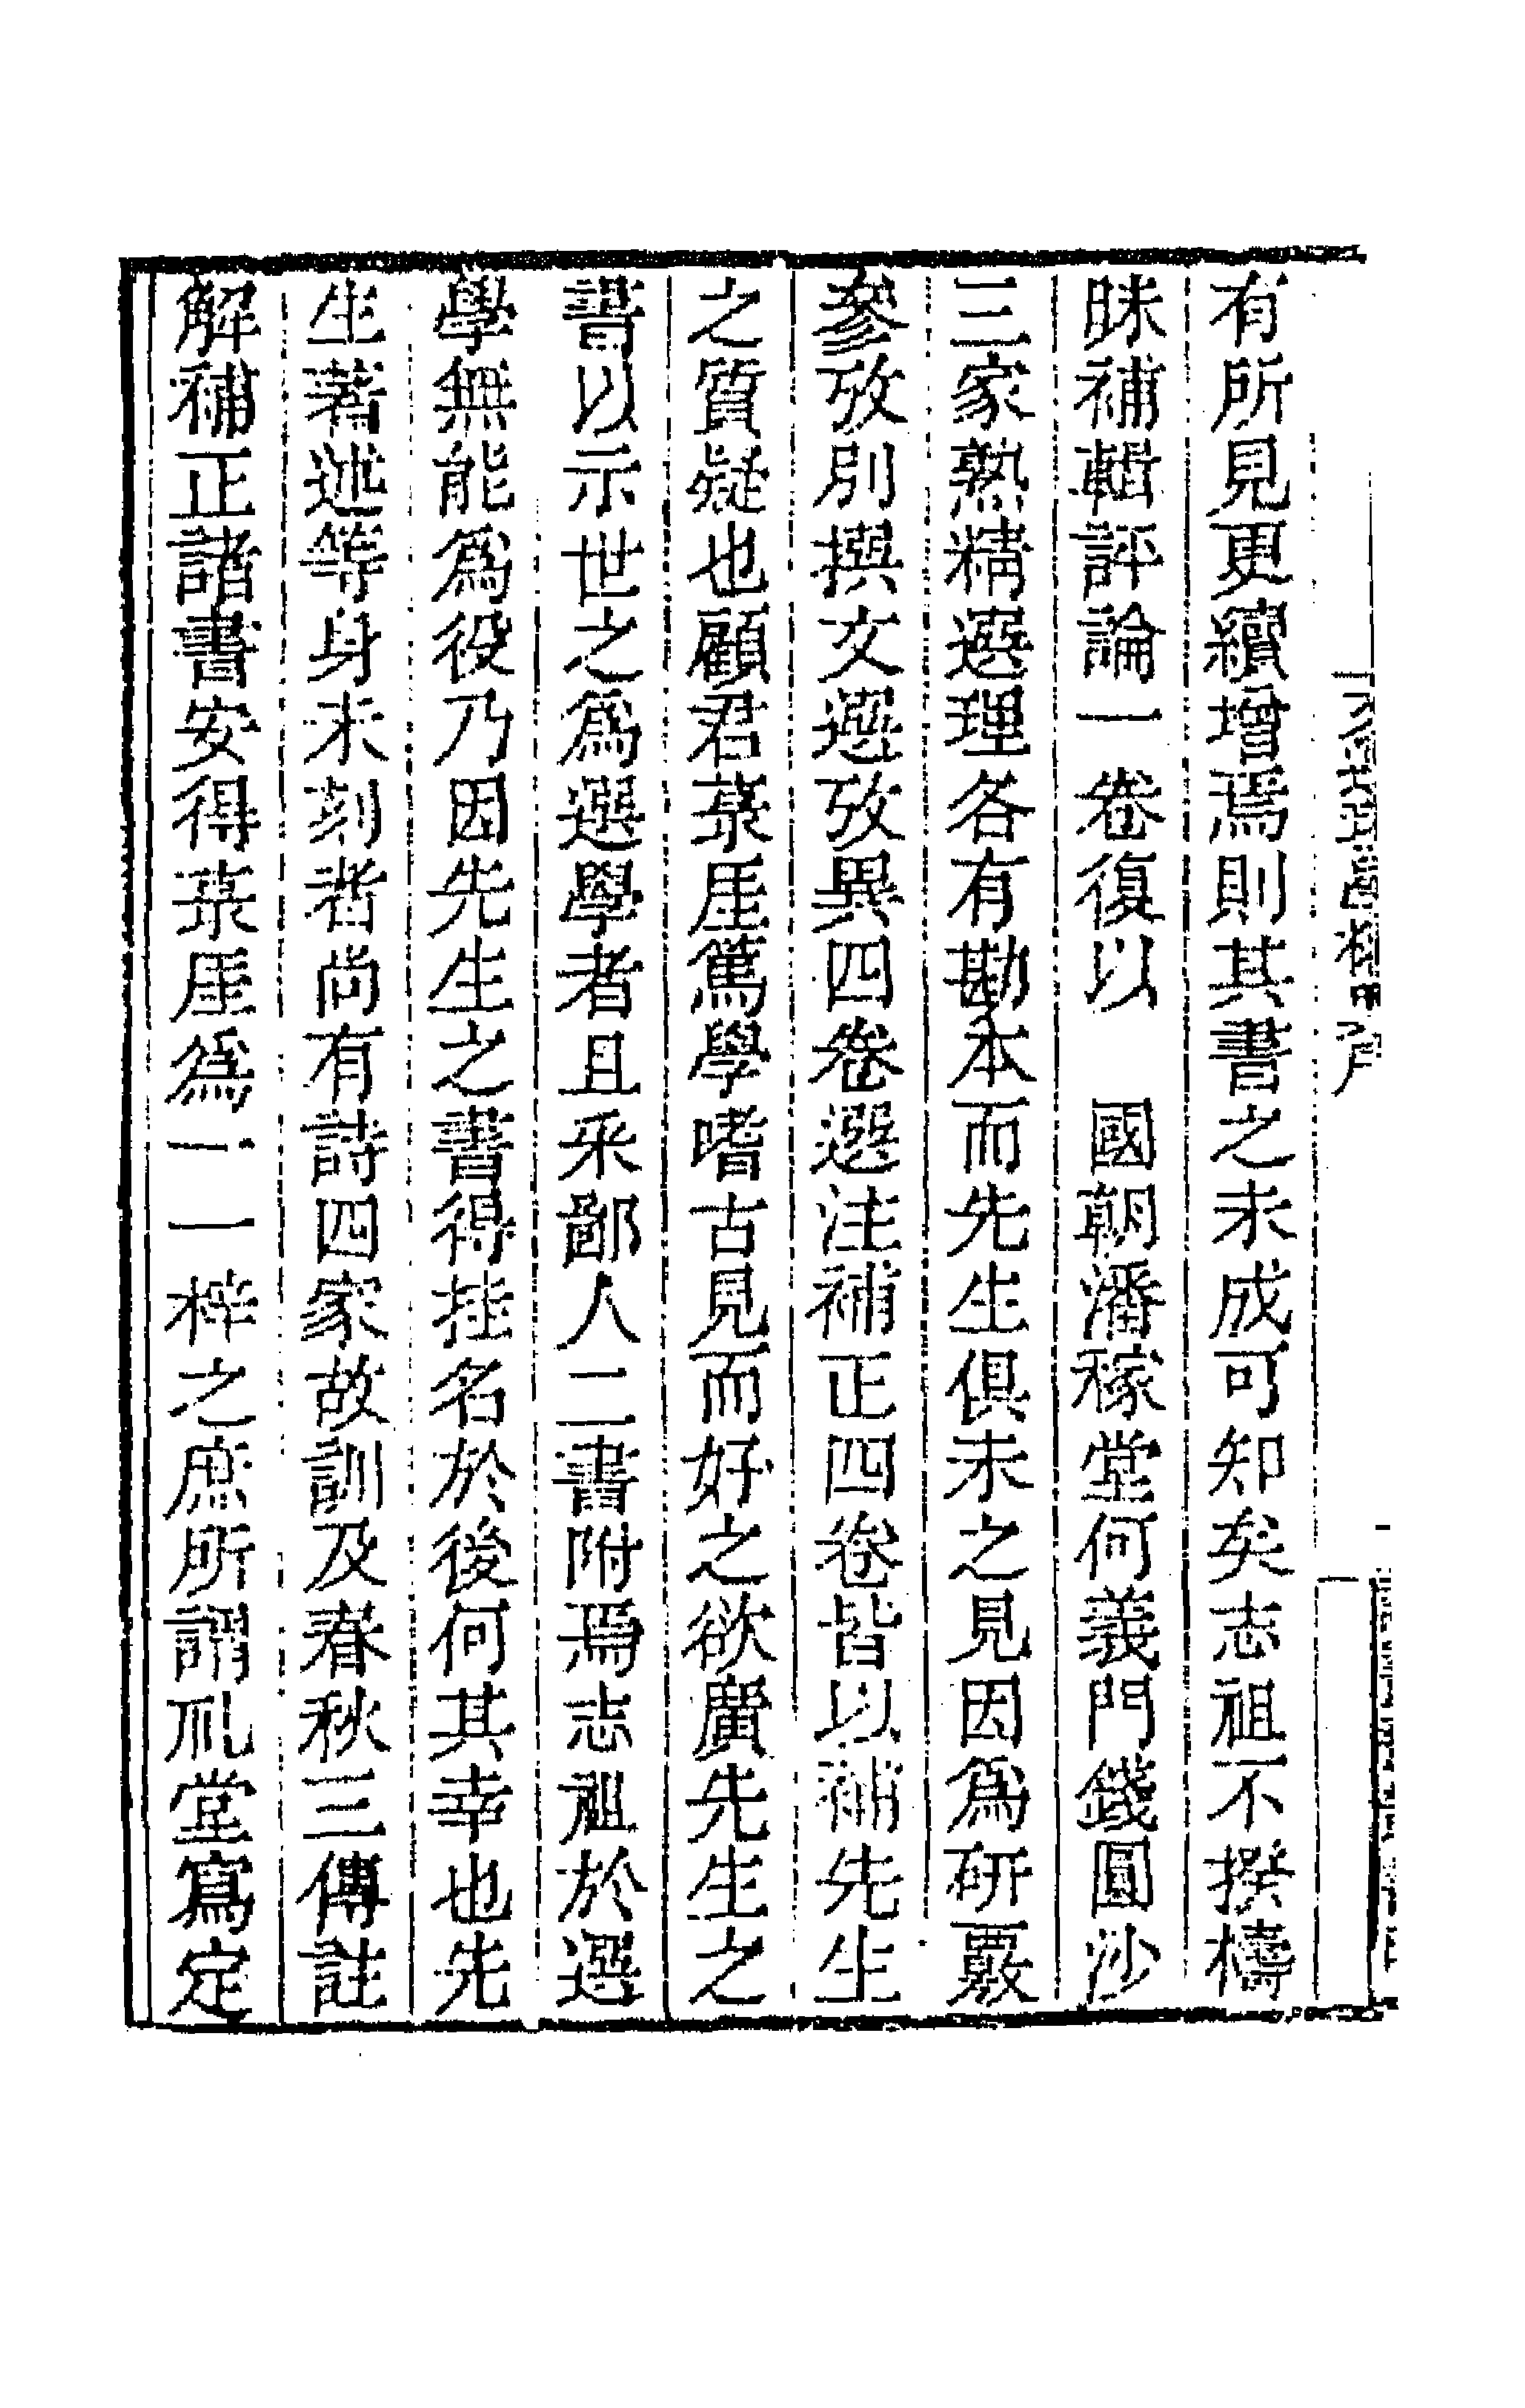 有所見更續增焉則其書之未成可知矣志祖不揆檮
昧補輯評論一卷復以　國朝潘稼堂何義門錢圓沙
三家熟精選理各有勘本而先生俱未之見因爲研覈
參攷別撰文選攷異四卷選注補正四卷皆以補先生
之質疑也顧君菉厓篤學嗜古見而好之欲廣先生之
書以示世之爲選學者且采鄙人二書附焉志祖於選
學無能爲役乃因先生之書得挂名於後何其幸也先
生著述等身未刻者尚有詩四家故訓及春秋三傳註
解補正諸書安得菉厓爲一一梓之庶所謂㐆堂寫定